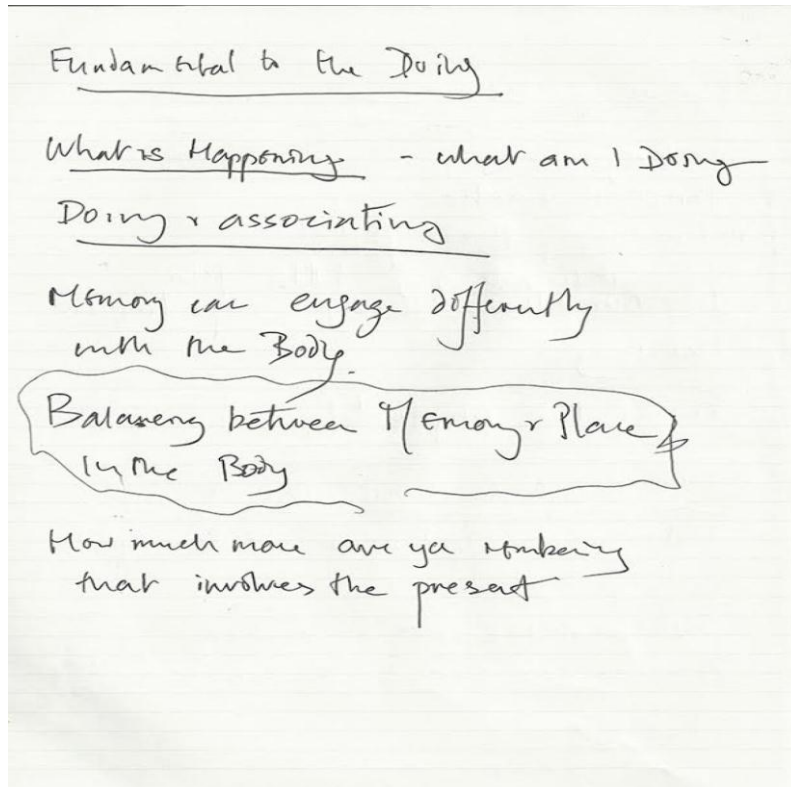 Fundamental to the Doing
What is Happening - what am I Doing
Doing & associating
Memory can engage differently
with the Body.
Balaneng between Memory & Place
in the Body
How much more are ya rembering
that involves the present